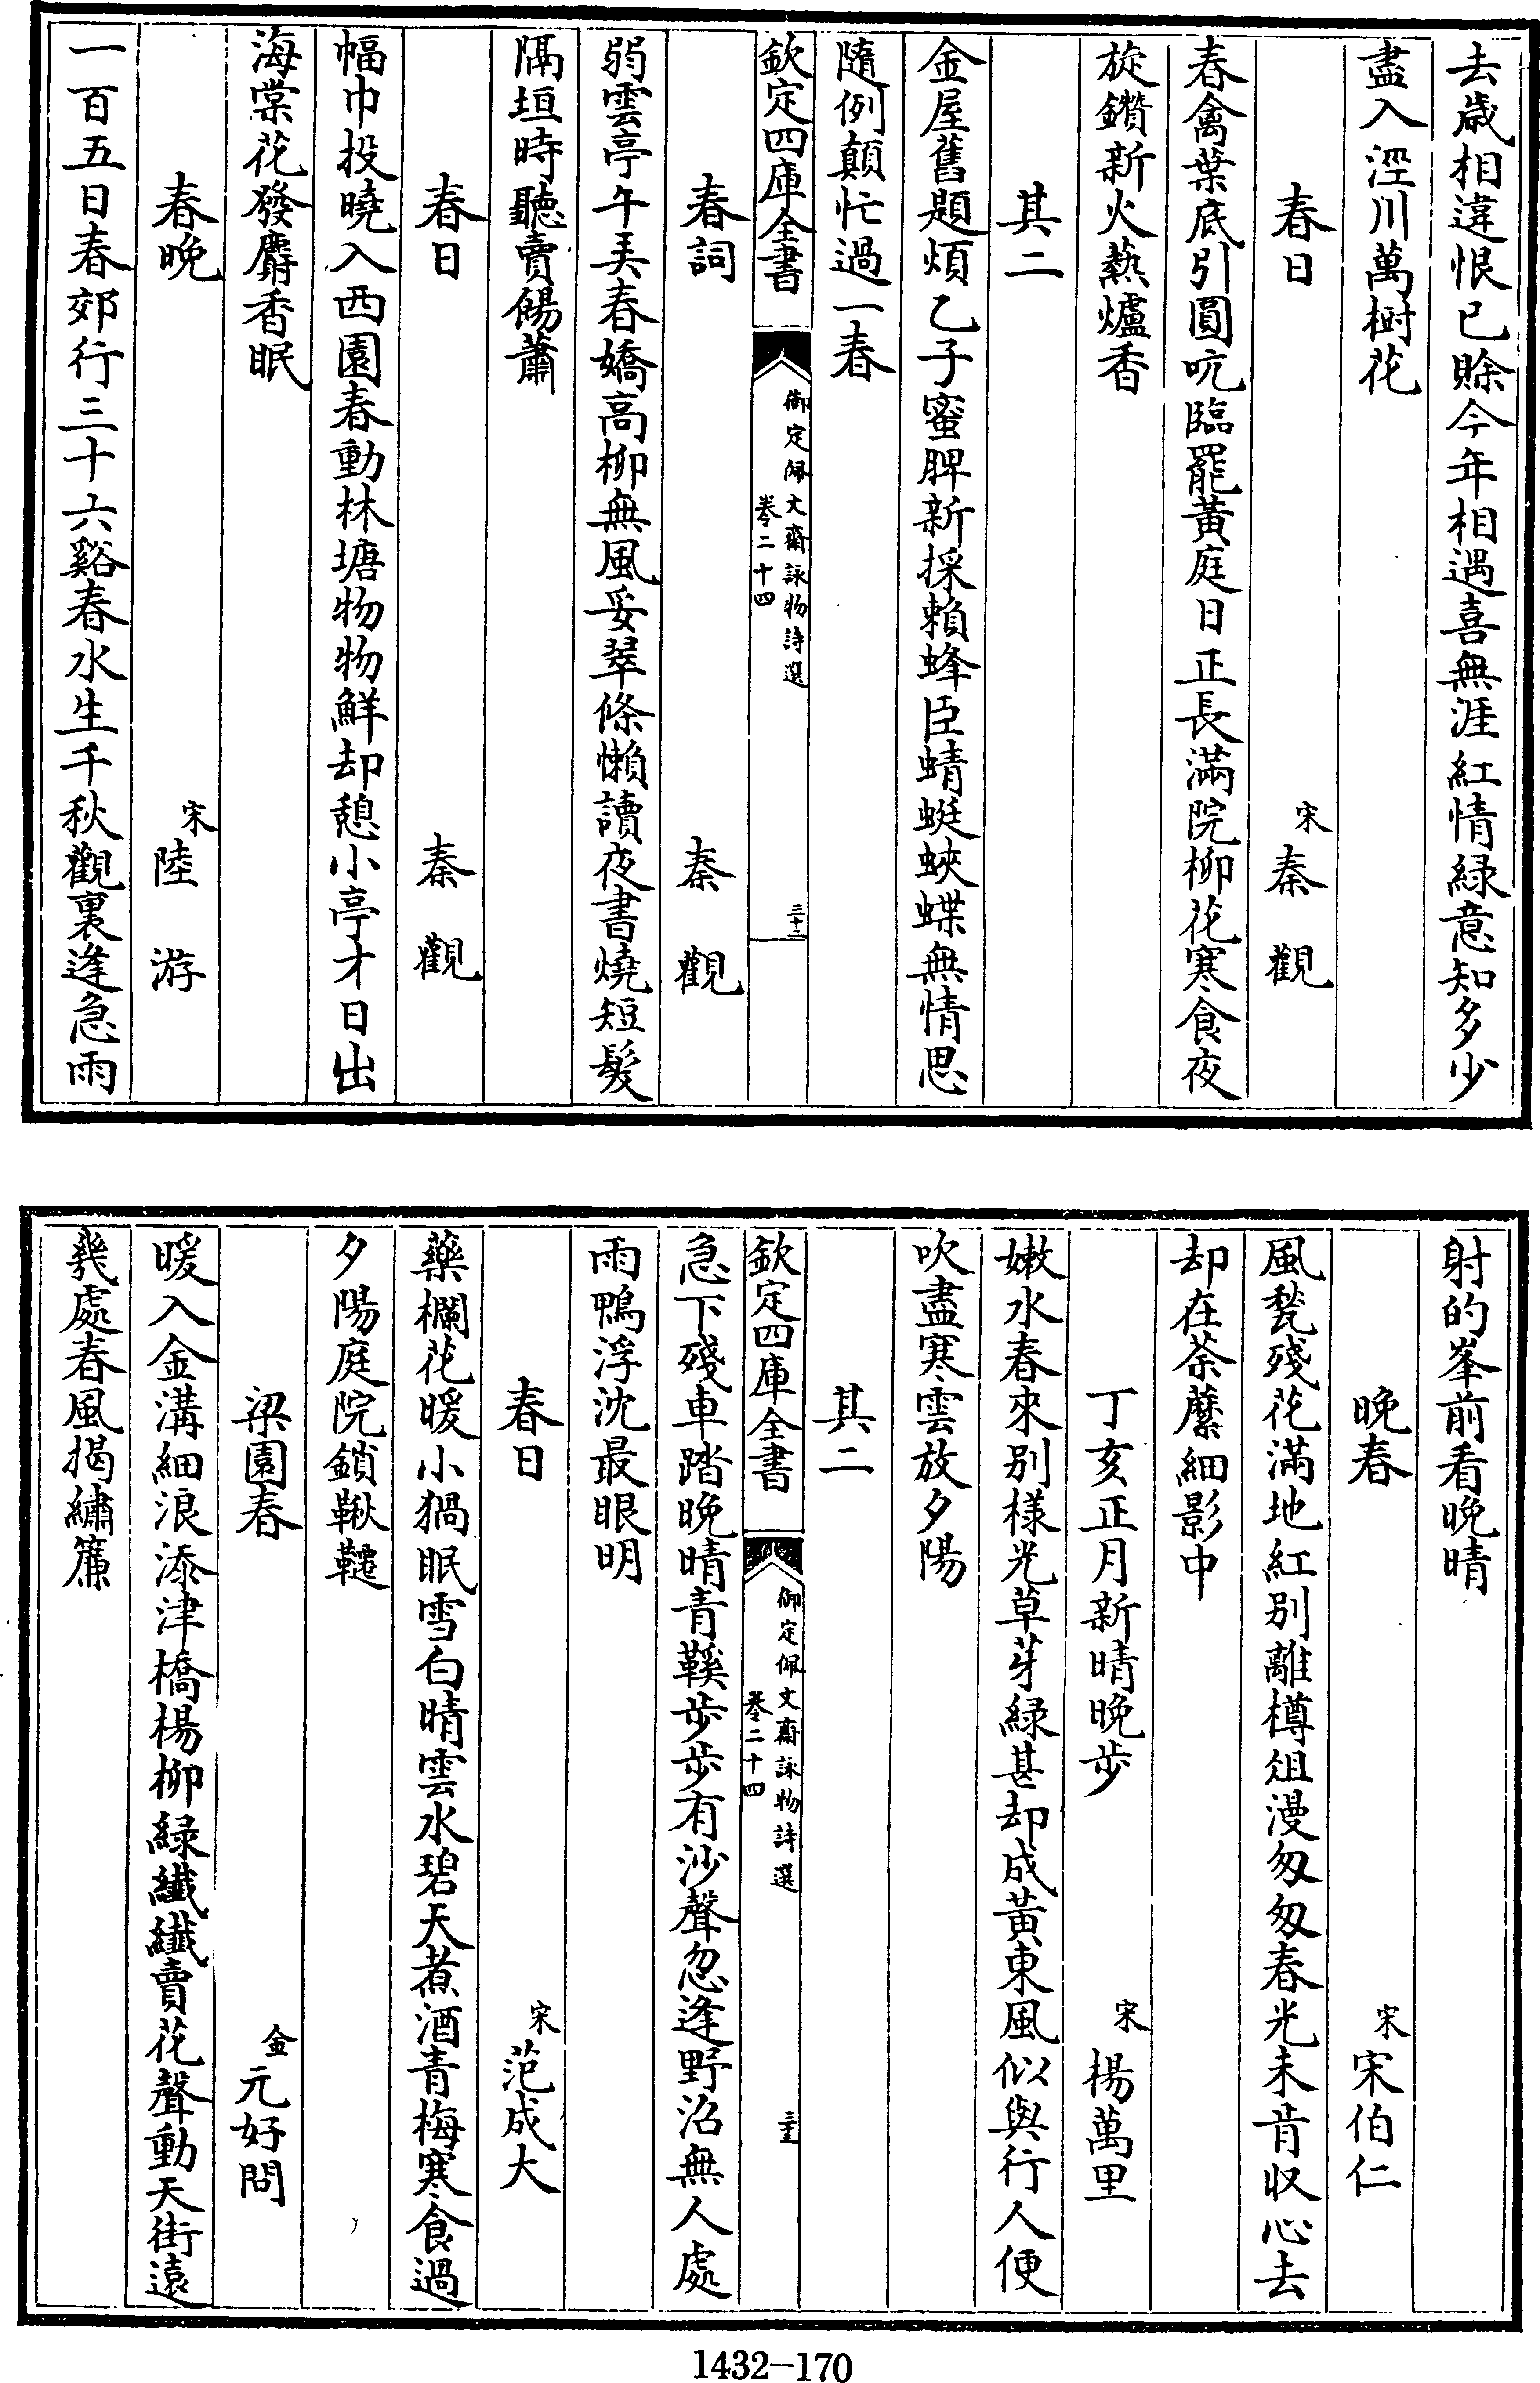 去歲相違恨已賒今年相遇喜無涯紅情緑意知多少
盡入涇川萬樹花
春日　宋秦觀
春禽葉底引圓吭臨罷黄庭日正長滿院柳花寒食夜
旋鑽新火爇爐香
其二
金屋舊題煩乙子蜜脾新採賴蜂臣蜻蜓蛺蝶無情思
隨例顛忙過一春
欽定四庫全書　御定佩文齋詠物詩選　卷二十四　三十二
春詞　秦觀
弱雲亭午弄春嬌高柳無風妥翠條懶讀夜書燒短髮
隔垣時聽賣餳簫
春日　秦觀
幅巾投曉入西園春動林塘物物鮮却憩小亭才日出
海棠花發麝香眠
春晚　宋陸游
一百五日春郊行三十六谿春水生千秋觀裏逢急雨
射的峯前看晚晴
晚春　宋宋伯仁
風甃殘花滿地紅别離樽俎漫匆匆春光未肯收心去
却在荼蘼細影中
丁亥正月新晴晚步　宋楊萬里
嫩水春來别樣光草芽緑甚却成黄東風似與行人便
吹盡寒雲放夕陽
其二
欽定四庫全書　御定佩文齋詠物詩選　卷二十四　三十三
急下殘車踏晚晴青鞵步步有沙聲忽逢野沼無人處
兩鴨浮沈最眼明
春日　宋范成大
藥欄花暖小猧眠雪白晴雲水碧天煮酒青梅寒食過
夕陽庭院鎖鞦韆
梁園春　金元好問
暖入金溝細浪添津橋楊柳緑纖纖賣花聲動天街遠
幾處春風揭繡簾
1432—170